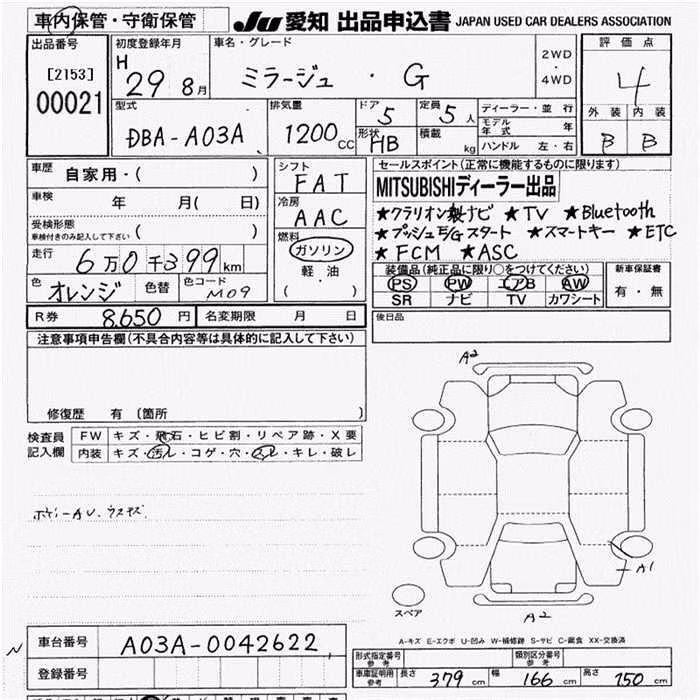 車内保管・守衛保管 JU 愛知 出品申込書 JAPAN USED CAR DEALERS ASSOCIATION
出品番号 [2153] 00021
初度登録年月 H 29 8月
車名・グレード ミラージュ ・ G
2WD ・ 4WD
評価点 4
外装 内装
B B
型式 DBA-A03A
排気量 1200 CC
ドア 5
形状 HB
定員 5 人
積載 kg
ディーラー・並行
モデル年式 年
ハンドル 左・右
車歴 自家用・( )
車検 年 月( 日)
受検形態
車検付きのみ記入して下さい ( )
走行 6万0千399km
色 オレンジ 色替 色コード M09
シフト FAT
冷房 AAC
燃料 ガソリン
軽・油
( )
セールスポイント(正常に機能するものに限ります)
MITSUBISHIディーラー出品
★クラリオン製ナビ ★TV ★Bluetooth
★プッシュE/Gスタート ★スマートキー ★ETC
★FCM ★ASC
装備品(純正品に限り○をつけてください)
PS PW エアB AW
SR ナビ TV カワシート
新車保証書
有・無
R券 8.650 円 名変期限 月 日
後日品
注意事項申告欄(不具合内容等は具体的に記入して下さい)
修復歴 有 〔箇所 〕
検査員記入欄
FW キズ・飛石・ヒビ割・リペア跡・X要
内装 キズ・汚レ・コゲ・穴・スレ・キレ・破レ
ボディーAU.ウスキズ
A2
A1
A2
スペア
A-キズ E-エクボ U-凹み W-補修跡 S-サビ C-腐食 XX-交換済
N
車台番号 A03A-0042622
登録番号
形式指定番号 参考
類別区分番号 参考
車庫証明用 参考 長さ 379 cm 幅 166 cm 高さ 150 cm